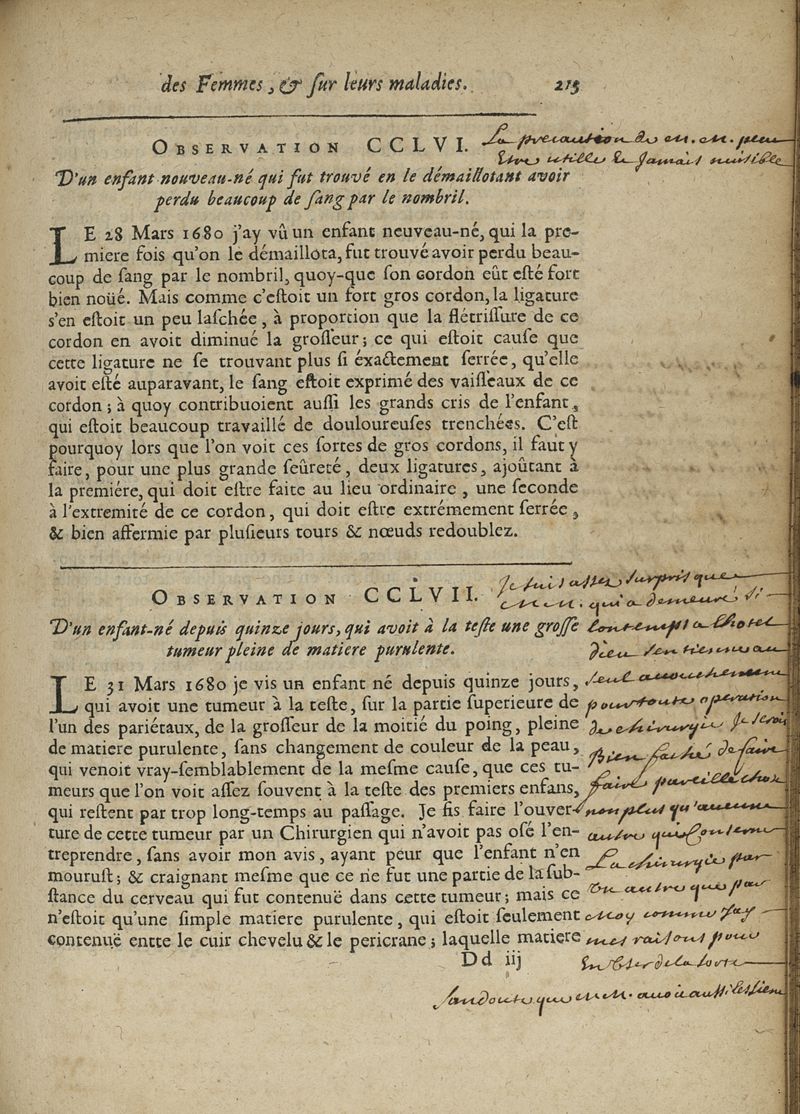 des Femmes, & ſur leurs maladies. 215
OBSERVATION CCLVI.
La precaution de m. m. peu
Etre utille & Jamais nuisible
D'un enfant nouveau-né qui fut trouvé en le démaillotant avoir
perdu beaucoup de ſang par le nombril.
LE 28 Mars 1680 j'ay vû un enfant neuveau-né, qui la pre-
miere fois qu'on le démaillota, fut trouvé avoir perdu beau-
coup de ſang par le nombril, quoy-que ſon cordon eût eſté fort
bien noüé. Mais comme c'eſtoit un fort gros cordon, la ligature
s'en eſtoit un peu laſchée, à proportion que la flétriſſure de ce
cordon en avoit diminué la groſſeur; ce qui eſtoit cauſe que
cette ligature ne ſe trouvant plus ſi éxactement ſerrée, qu'elle
avoit eſté auparavant, le ſang eſtoit exprimé des vaiſſeaux de ce
cordon; à quoy contribuoient auſſi les grands cris de l'enfant,
qui eſtoit beaucoup travaillé de douloureuſes trenchées. C'eſt
pourquoy lors que l'on voit ces ſortes de gros cordons, il faut y
faire, pour une plus grande ſeûreté, deux ligatures, ajoûtant à
la premiére, qui doit eſtre faite au lieu ordinaire, une ſeconde
à l'extremité de ce cordon, qui doit eſtre extrémement ſerrée,
& bien affermie par pluſieurs tours & nœuds redoublez.
OBSERVATION CCLVII.
D'un enfant-né depuis quinze jours, qui avoit à la teſte une groſſe
tumeur pleine de matiere purulente.
LE 31 Mars 1680 je vis un enfant né depuis quinze jours,
qui avoit une tumeur à la teſte, ſur la partie ſuperieure de
l'un des pariétaux, de la groſſeur de la moitié du poing, pleine
de matiere purulente, ſans changement de couleur de la peau,
qui venoit vray-ſemblablement de la meſme cauſe, que ces tu-
meurs que l'on voit aſſez ſouvent à la teſte des premiers enfans,
qui reſtent par trop long-temps au paſſage. Je fis faire l'ouver-
ture de cette tumeur par un Chirurgien qui n'avoit pas oſé l'en-
treprendre, ſans avoir mon avis, ayant peur que l'enfant n'en
mouruſt; & craignant meſme que ce ne fut une partie de la ſub-
ſtance du cerveau qui fut contenuë dans cette tumeur; mais ce
n'eſtoit qu'une ſimple matiere purulente, qui eſtoit ſeulement
contenuë entte le cuir chevelu & le pericrane; laquelle matiere
Dd iij
Je suis assez surpris que
m. m. qui a demeuré si
Lontemps a Lhotel
dieu sen tienne au
seul accouchement
pour toute operation
de chirurgie Je serois
Bien faché de faire
faire pareille chose
non plus qu'aucune
autre qui Concerne
La chirurgie par
un autre que par
moy comme Jay
mes raisons pour
En User de la sorte
sans doute que m. m. avoit aussi les siennes